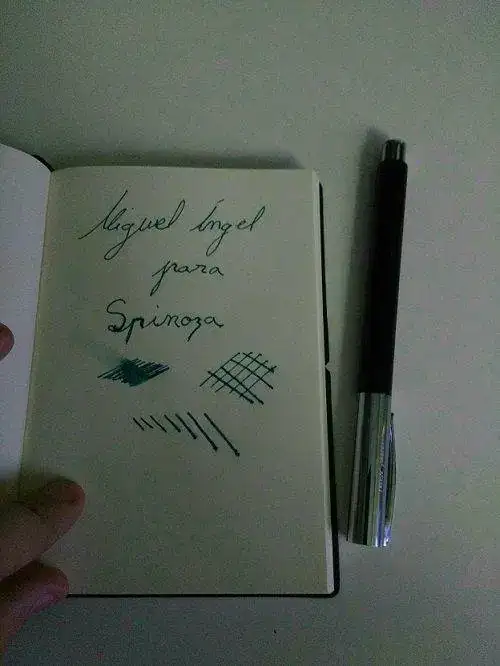 Miguel Ángel
para
Spinoza